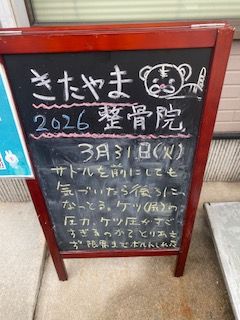 きたやま
2026 整骨院
3月31日(火)
サドルを前にしても
気づいたら後ろに、
なってる。ケツ(尻)の
圧力。ケツ圧がすご
すぎるのかでとりあえ
ず限界までボルトしめた